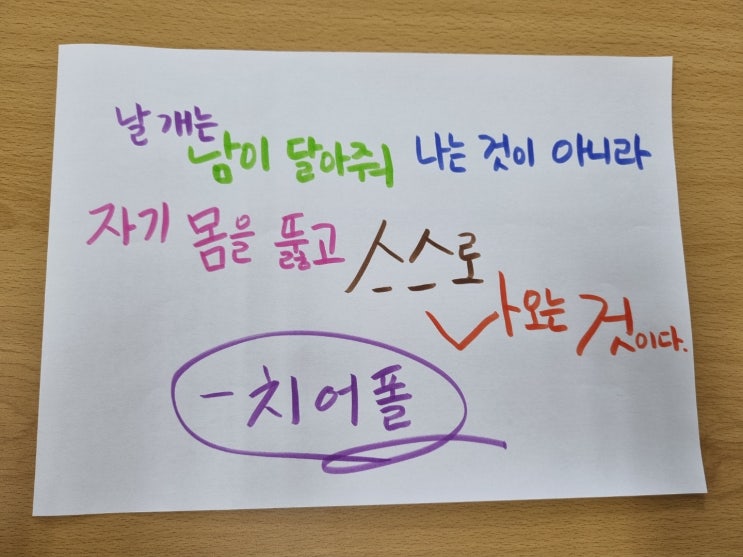 날개는 남이 달아줘 나는 것이 아니라
자기 몸을 뚫고 스스로 나오는 것이다.
- 치어폴